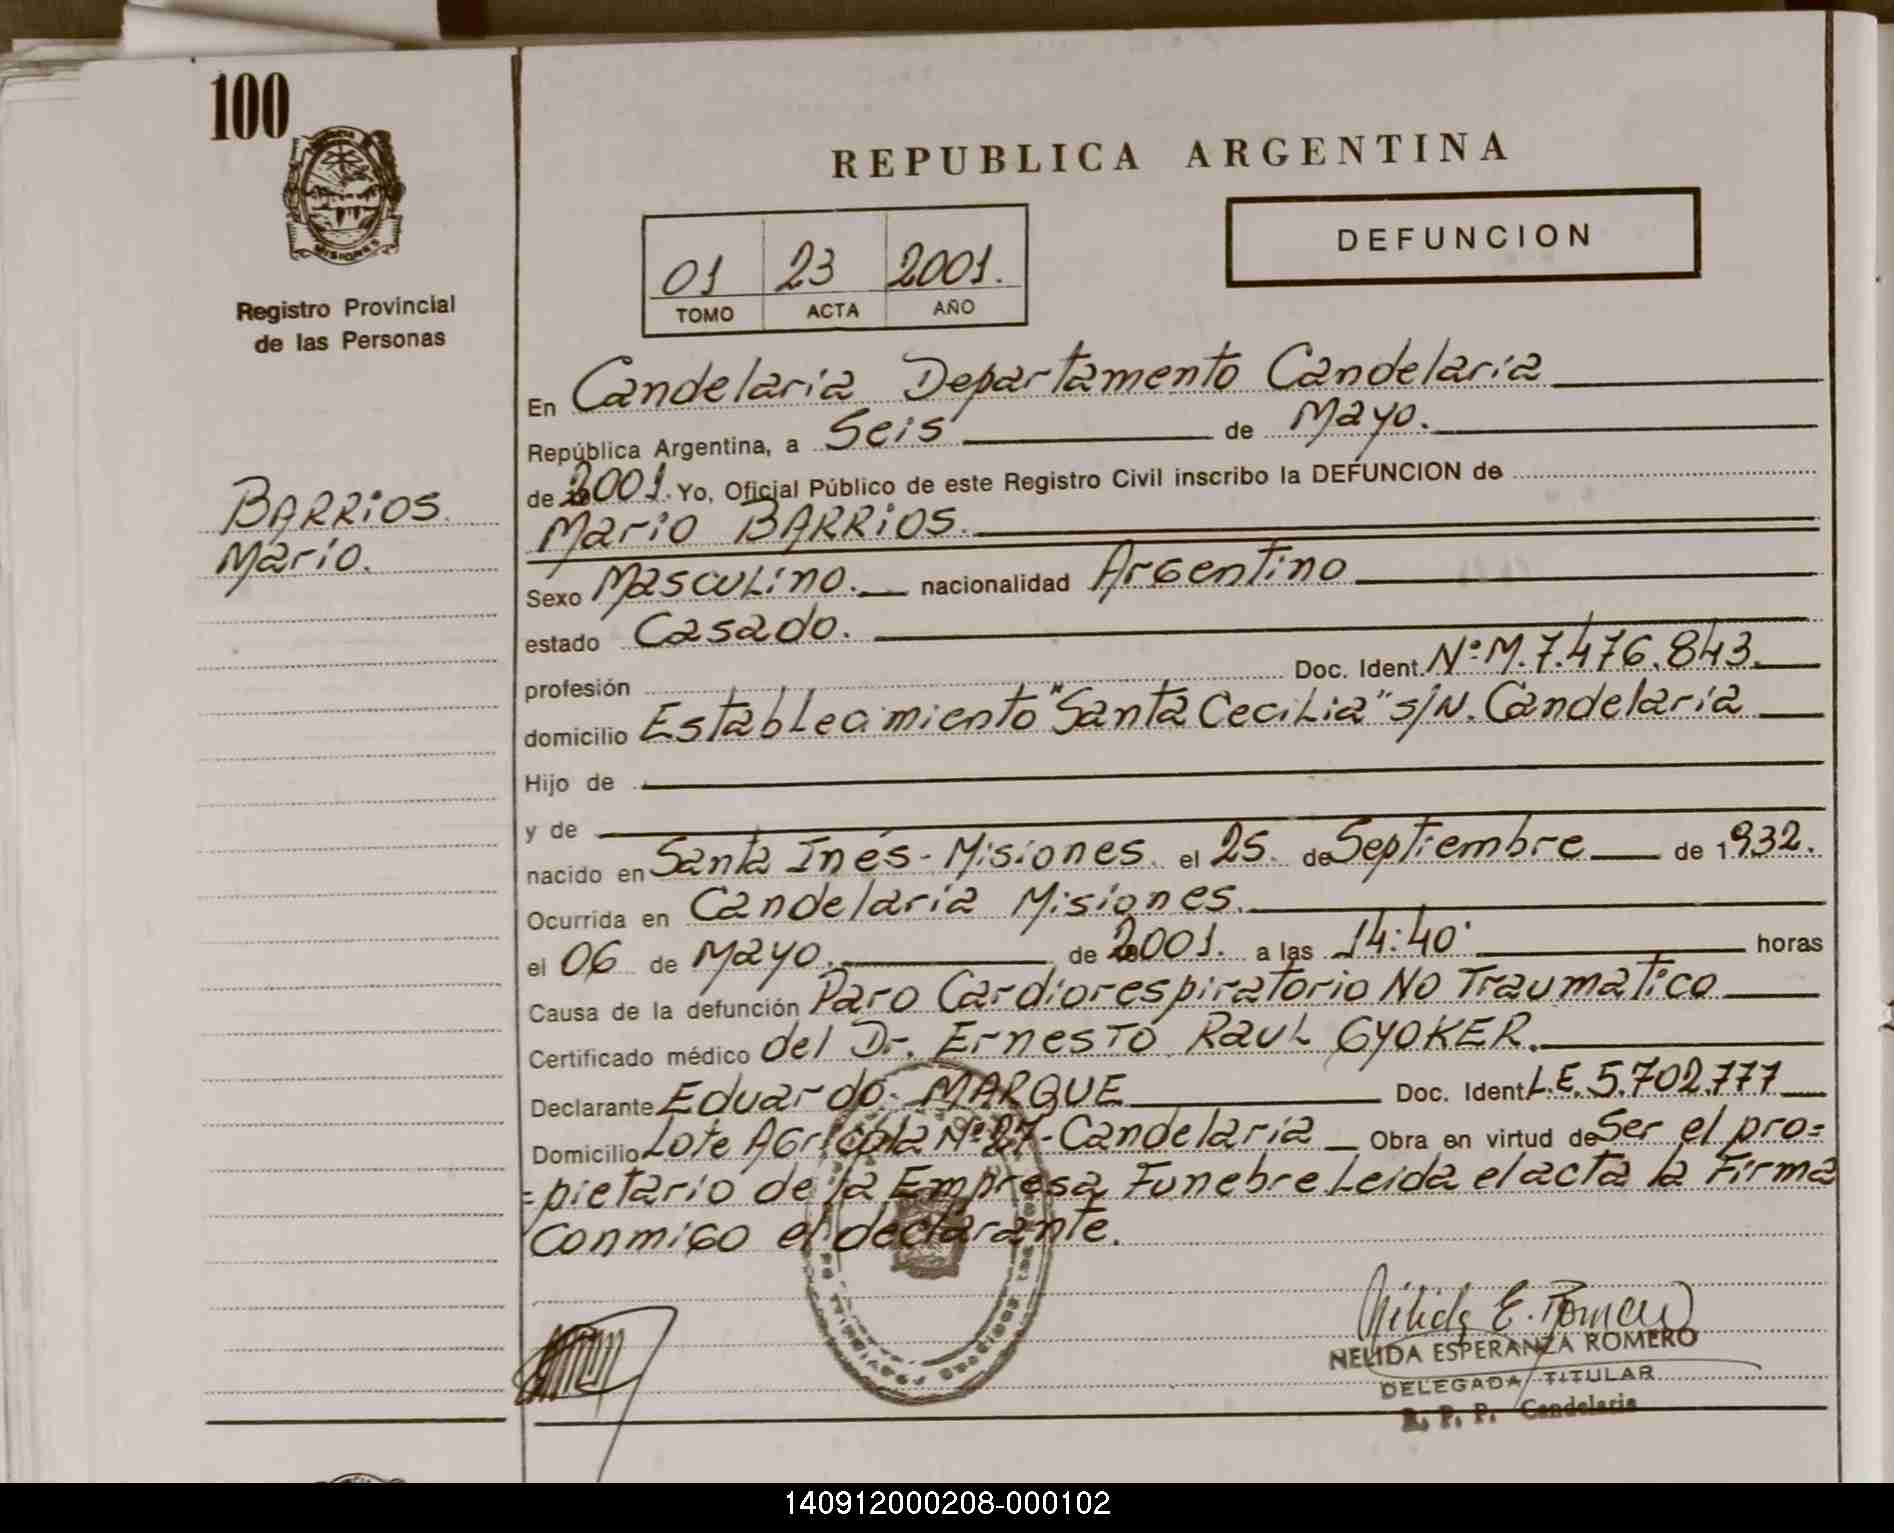 100
MISIONES
Registro Provincial
de las Personas
BARRIOS.
Mario.
REPUBLICA ARGENTINA
DEFUNCION
01 23 2001.
TOMO ACTA AÑO
En Candelaria Departamento Candelaria
República Argentina, a Seis de Mayo.
de 2001. Yo, Oficial Público de este Registro Civil inscribo la DEFUNCION de
Mario BARRIOS.
Sexo Masculino. nacionalidad Argentino
estado Casado.
profesión Doc. Ident. Nº M. 7.476.843.
domicilio Establecimiento "Santa Cecilia" s/N. Candelaria
Hijo de
y de
nacido en Santa Inés - Misiones. el 25. de Septiembre de 1932.
Ocurrida en Candelaria Misiones.
el 06 de Mayo. de 2001. a las 14:40' horas
Causa de la defunción Paro Cardiorespiratorio No Traumatico
Certificado médico del Dr. Ernesto Raul GYOKER.
Declarante Eduardo. MARQUE Doc. Ident. L.E. 5.702.777
Domicilio Lote Agricola Nº 27 - Candelaria Obra en virtud de Ser el pro=
=pietario de la Empresa Funebre Leida el acta la Firma
Conmigo el declarante.
Nélida E. Romero
NELIDA ESPERANZA ROMERO
DELEGADA TITULAR
R. P. P. Candelaria
140912000208-000102